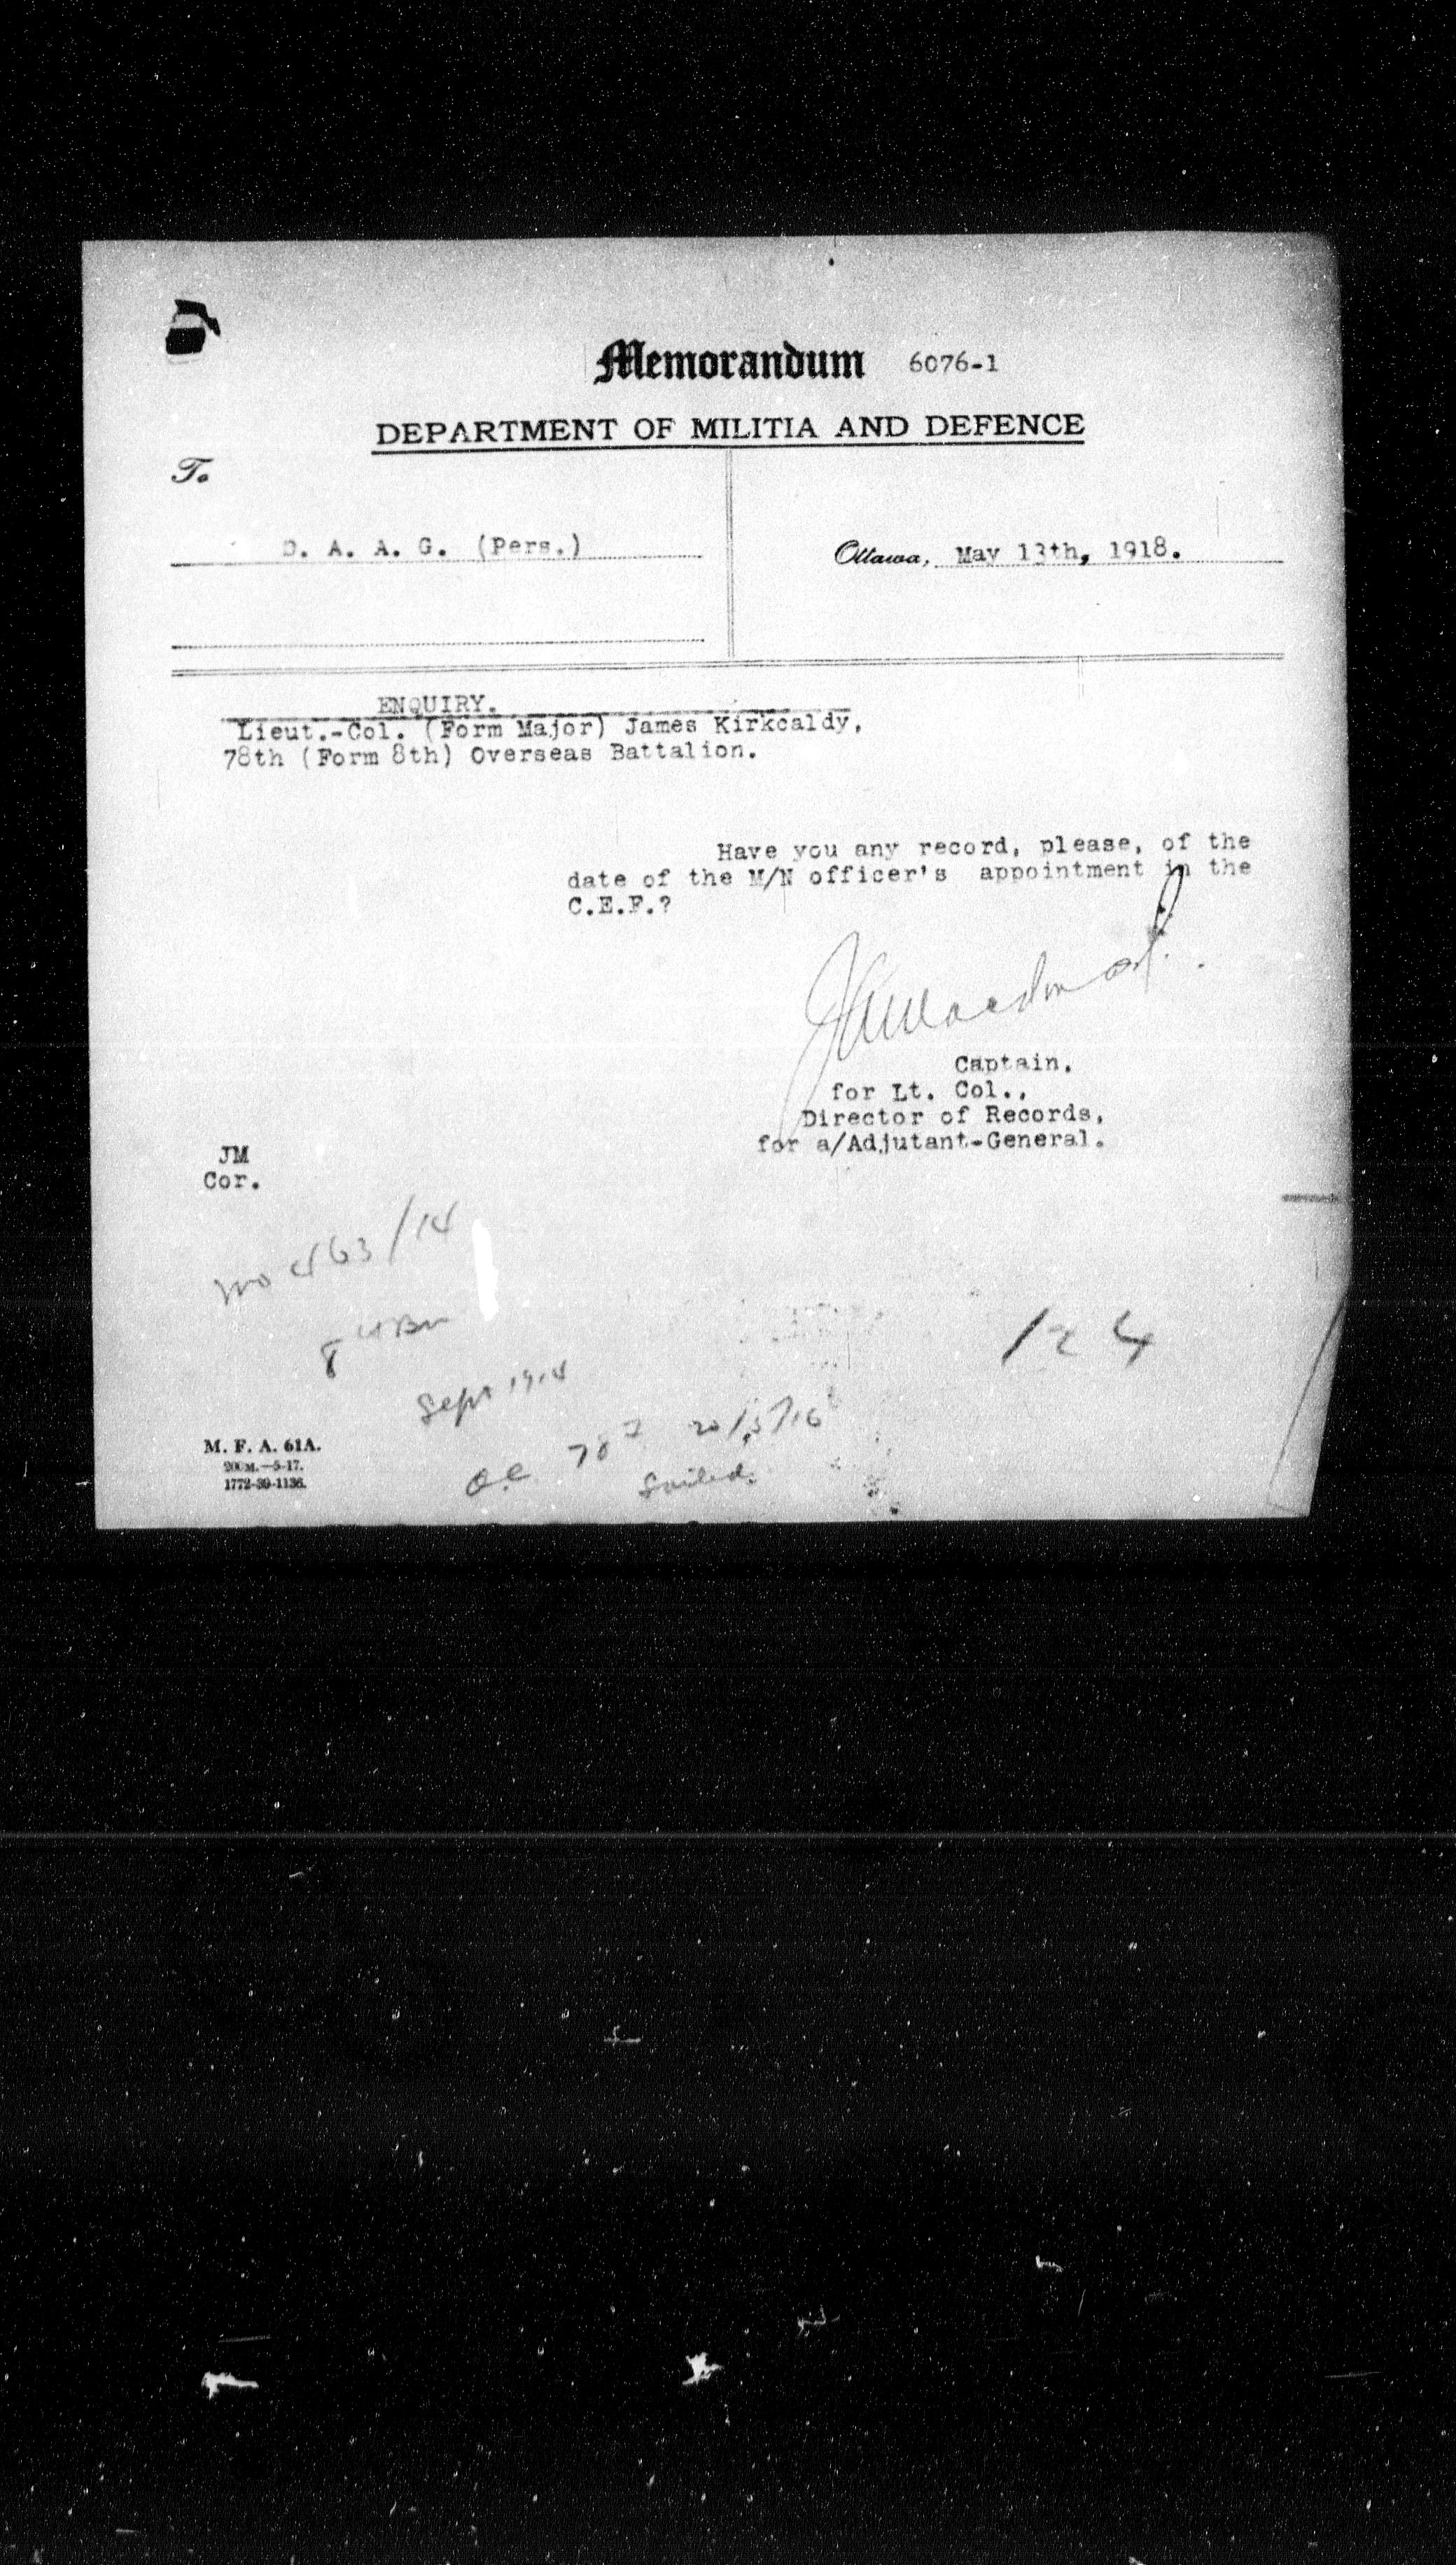 Memorandum 6076-1
DEPARTMENT OF MILITIA AND DEFENCE
To
D. A. A. G. (Pers.)
Ottawa, May 13th, 1918.
ENQUIRY.
Lieut.-Col. (Form Major) James Kirkcaldy,
78th (Form 8th) Overseas Battalion.
Have you any record, please, of the
date of the M/N officer's appointment in the
C.E.F.?
Captain,
for Lt. Col.,
Director of Records,
for a/Adjutant-General.
JM
Cor.
463/14
8th Bn
Sept 1914
124
O.C. 78 20/5/16
Sailed.
M. F. A. 61A.
200M.—5-17.
1772-39-1136.